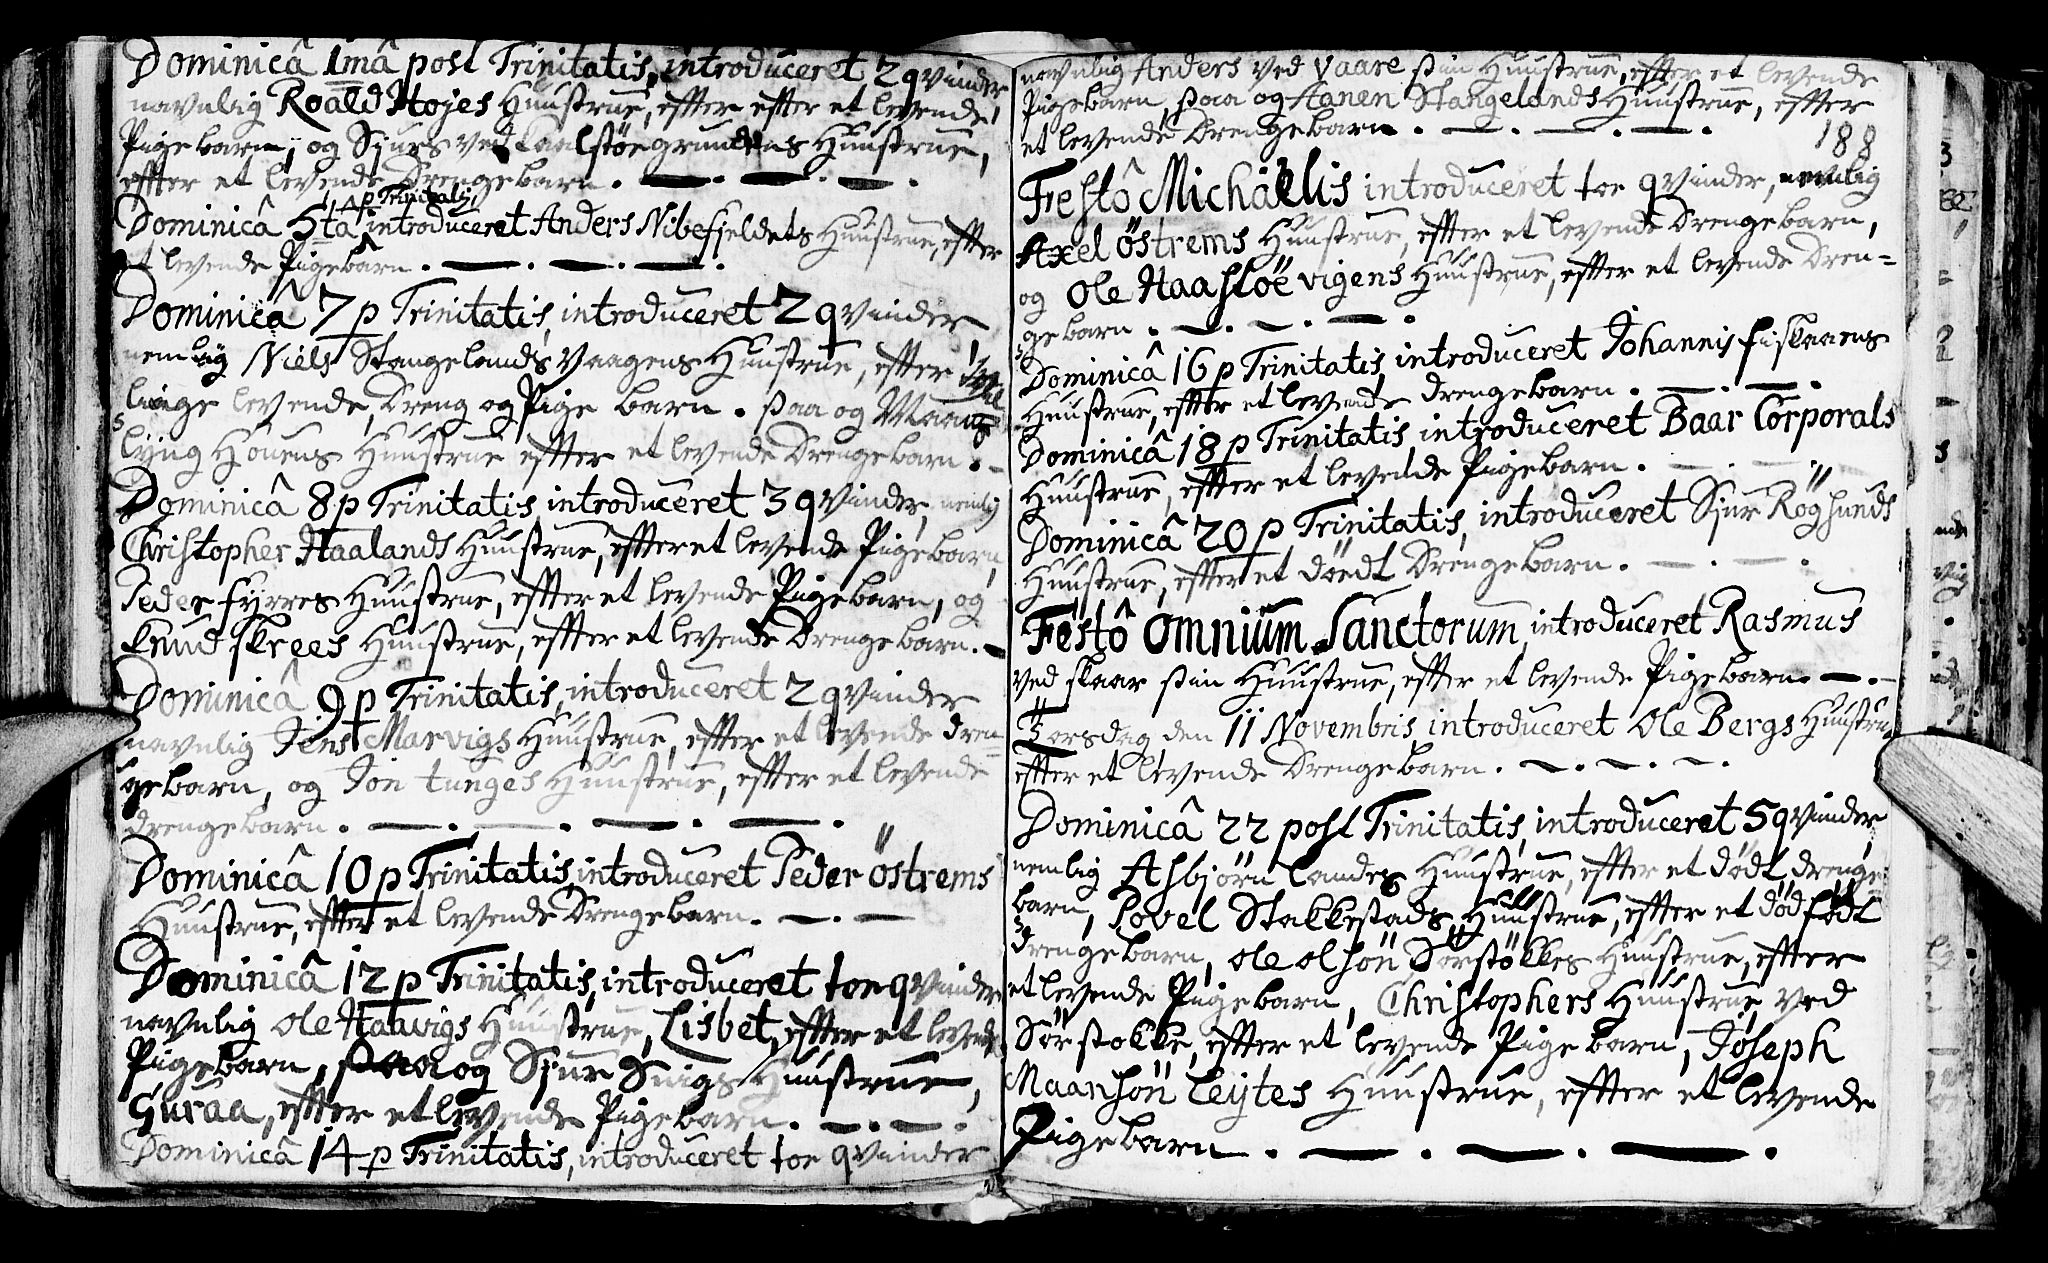 Dominicâ 1mâ post Trinitatis, introduceret 2 qvinder
navnlig Roald Højes Huustrue, effter effter et levende
Pigebarn, og Sjurs ved Kaalstøegrundens Huustrue,
effter et levende Drengebarn.
p Trinitatis,
Dominicâ 5ta introduceret Anders Nibefjeldets Huustrue, effter
et levende Pigebarn.
Dominicâ 7 p Trinitatis, introduceret 2 qvinder
nemlig Niels Stangelands Vaagens Huustrue, effter
linge levende, Dreng og Pige barn. saa og
Lÿng Houens Huustrue effter et levende Drengebarn.
Dominicâ 8 p Trinitatis introduceret 3 qvinder, nemlig
Christopher Haalands Huustrue, effter et levende Pigebarn,
Peder fyrres Huustrue, effter et levende Pigebarn, og
Knud skrees Huustrue, effter et levende Drengebarn.
Dominicâ 9 p Trinitatis, introduceret 2 qvinder
navnlig Jens Marvigs Huustrue, effter et levende dren-
gebarn, og Jon tunges Huustrue, effter et levende
drengebarn.
Dominicâ 10 p Trinitatis, introduceret Peder östrems
Huustrue, effter et levende Drengebarn.
Dominicâ 12 p Trinitatis, introduceret toe qvinder
navnlig Ole Haavigs Huustrue, Lisbet, effter et levende
Pigebarn, saa og Sjur Snigs Huustrue,
Guraa, effter et levende Pigebarn.
Dominicâ 14 p Trinitatis, introduceret toe qvinder
navnlig Anders ved Vaare sin Huustrue, effter et levende
Pigebarn, saa og Aanen Stangelands Huustrue, effter
et levende Drengebarn.
188
Festô Michäelis introduceret toe qvinder, nemlig
Axel östrems Huustrue, effter et levende Drengebarn,
og Ole Haastöevigens Huustrue, effter et levende Dren-
gebarn.
Dominicâ 16 p Trinitatis, introduceret Johannis fiskaaens
Huustrue, effter et levende drengebarn.
Dominicâ 18 p Trinitatis, introduceret Baar Corporals
Huustrue, effter et levende Pigebarn.
Dominicâ 20 p Trinitatis, introduceret Sjur Rögsunds
Huustrue, effter et döedt Drengebarn.
Festô Omnium Sanctorum, introduceret Rasmus
ved skaar sin Huustrue, effter et levende Pigebarn.
Torsdag den 11 Novembris introduceret Ole Bergs Huustrue
effter et levende Drengebarn.
Dominicâ 22 post Trinitatis, introduceret 5 qvinder,
nemlig Asbjörn Landes Huustrue, effter et dödt drenge
barn, Povel Stakkestads Huustrue, effter et dödfödt
drengebarn, Ole Olsön Sörstökkes Huustrue, effter
et levende Pigebarn, Christophers Huustrue, ved
Sörstokke, effter et levende Pige barn, Joseph
Maansön Leÿtes Huustrue, effter et levende
Pigebarn.